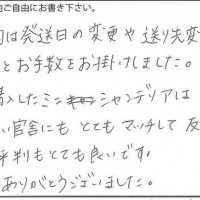 ご自由にお書き下さい。
は発送日の変更や送り先変
とお手数をお掛けしました。
購入したミニシャンデリアは
い官舎にもとてもマッチして反
評判もとても良いです。
ありがとうございました。